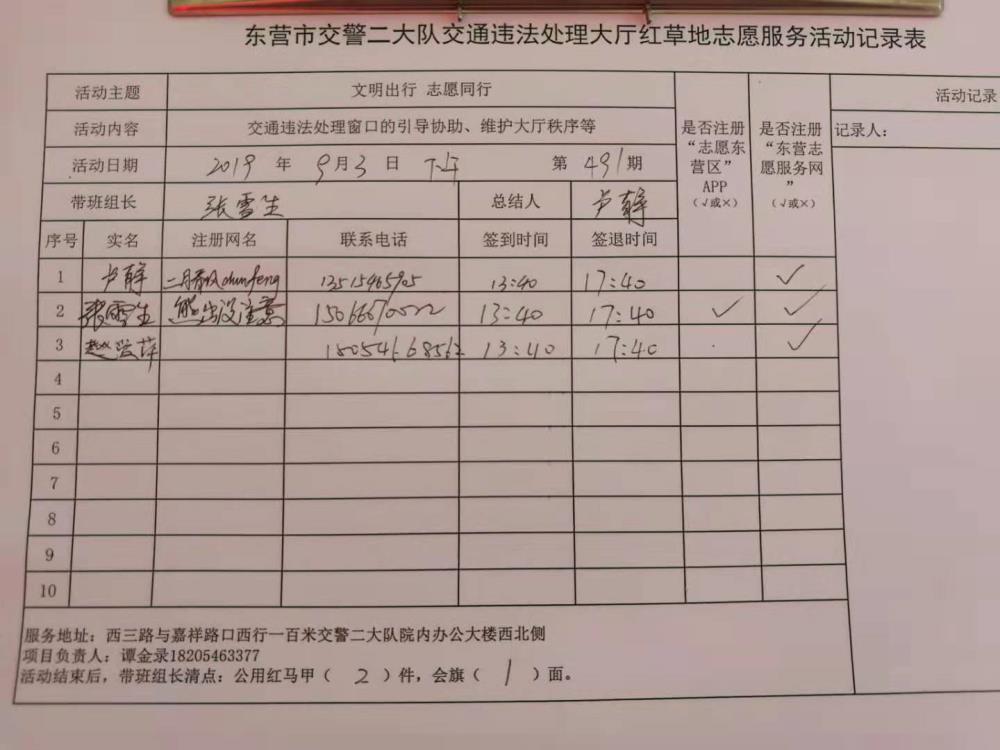 东营市交警二大队交通违法处理大厅红草地志愿服务活动记录表
活动主题 文明出行 志愿同行
活动内容 交通违法处理窗口的引导协助、维护大厅秩序等
活动日期 2019 年 9月3 日 下午 第 491 期
带班组长 张雪生 总结人 卢静
是否注册“志愿东营区”APP（√或×）
是否注册“东营志愿服务网”（√或×）
活动记录
记录人：
序号 实名 注册网名 联系电话 签到时间 签退时间
1 卢静 二月春风chunfeng 13515465905 13:40 17:40 √
2 张雪生 熊出没注意 13:40 17:40 √ √
3 13:40 17:40 √
4
5
6
7
8
9
10
服务地址：西三路与嘉祥路口西行一百米交警二大队院内办公大楼西北侧
项目负责人：谭金录18205463377
活动结束后，带班组长清点：公用红马甲（ 2 ）件，会旗（ 1 ）面。